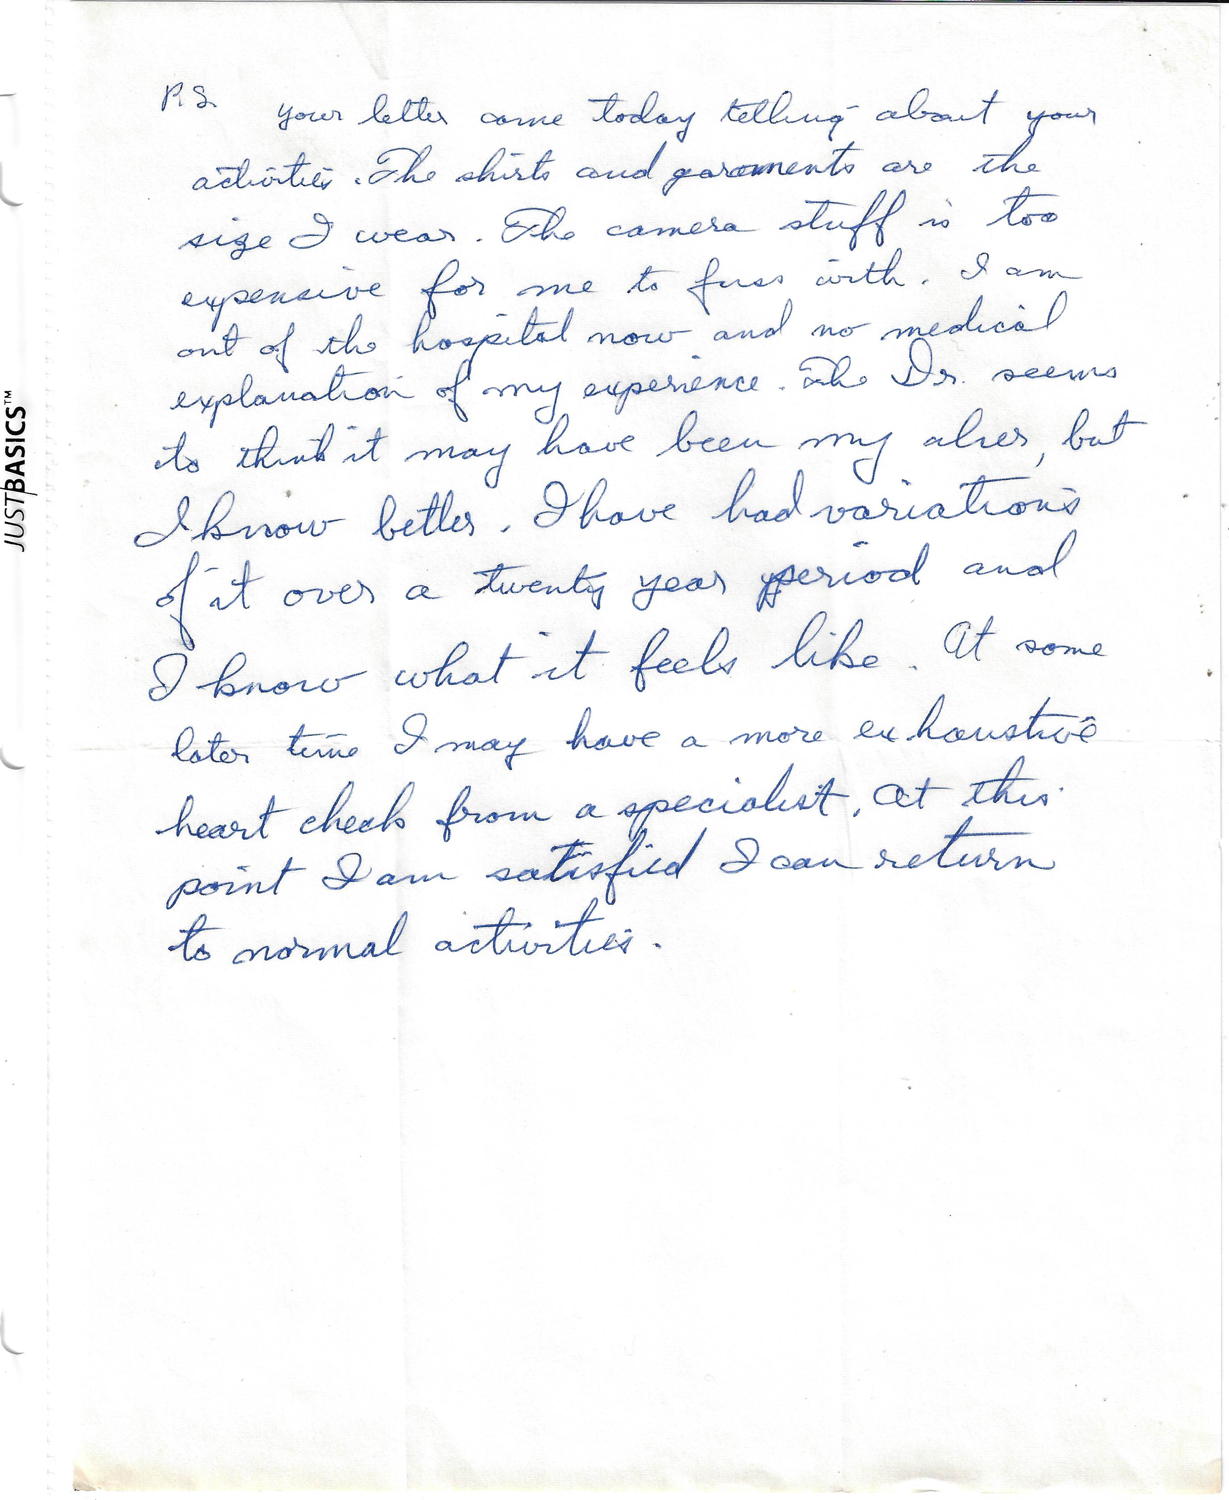 P.S. your letter came today telling about your
activities. The shirts and garments are the
size I wear. The camera stuff is too
expensive for me to fuss with. I am
out of the hospital now and no medical
explanation of my experience. The Dr. seems
to think it may have been my ulser, but
I know better. I have had variations
of it over a twenty year period and
I know what it feels like. At some
later time I may have a more exhaustive
heart check from a specialist. At this
point I am satisfied I can return
to normal activities.
JUSTBASICS™